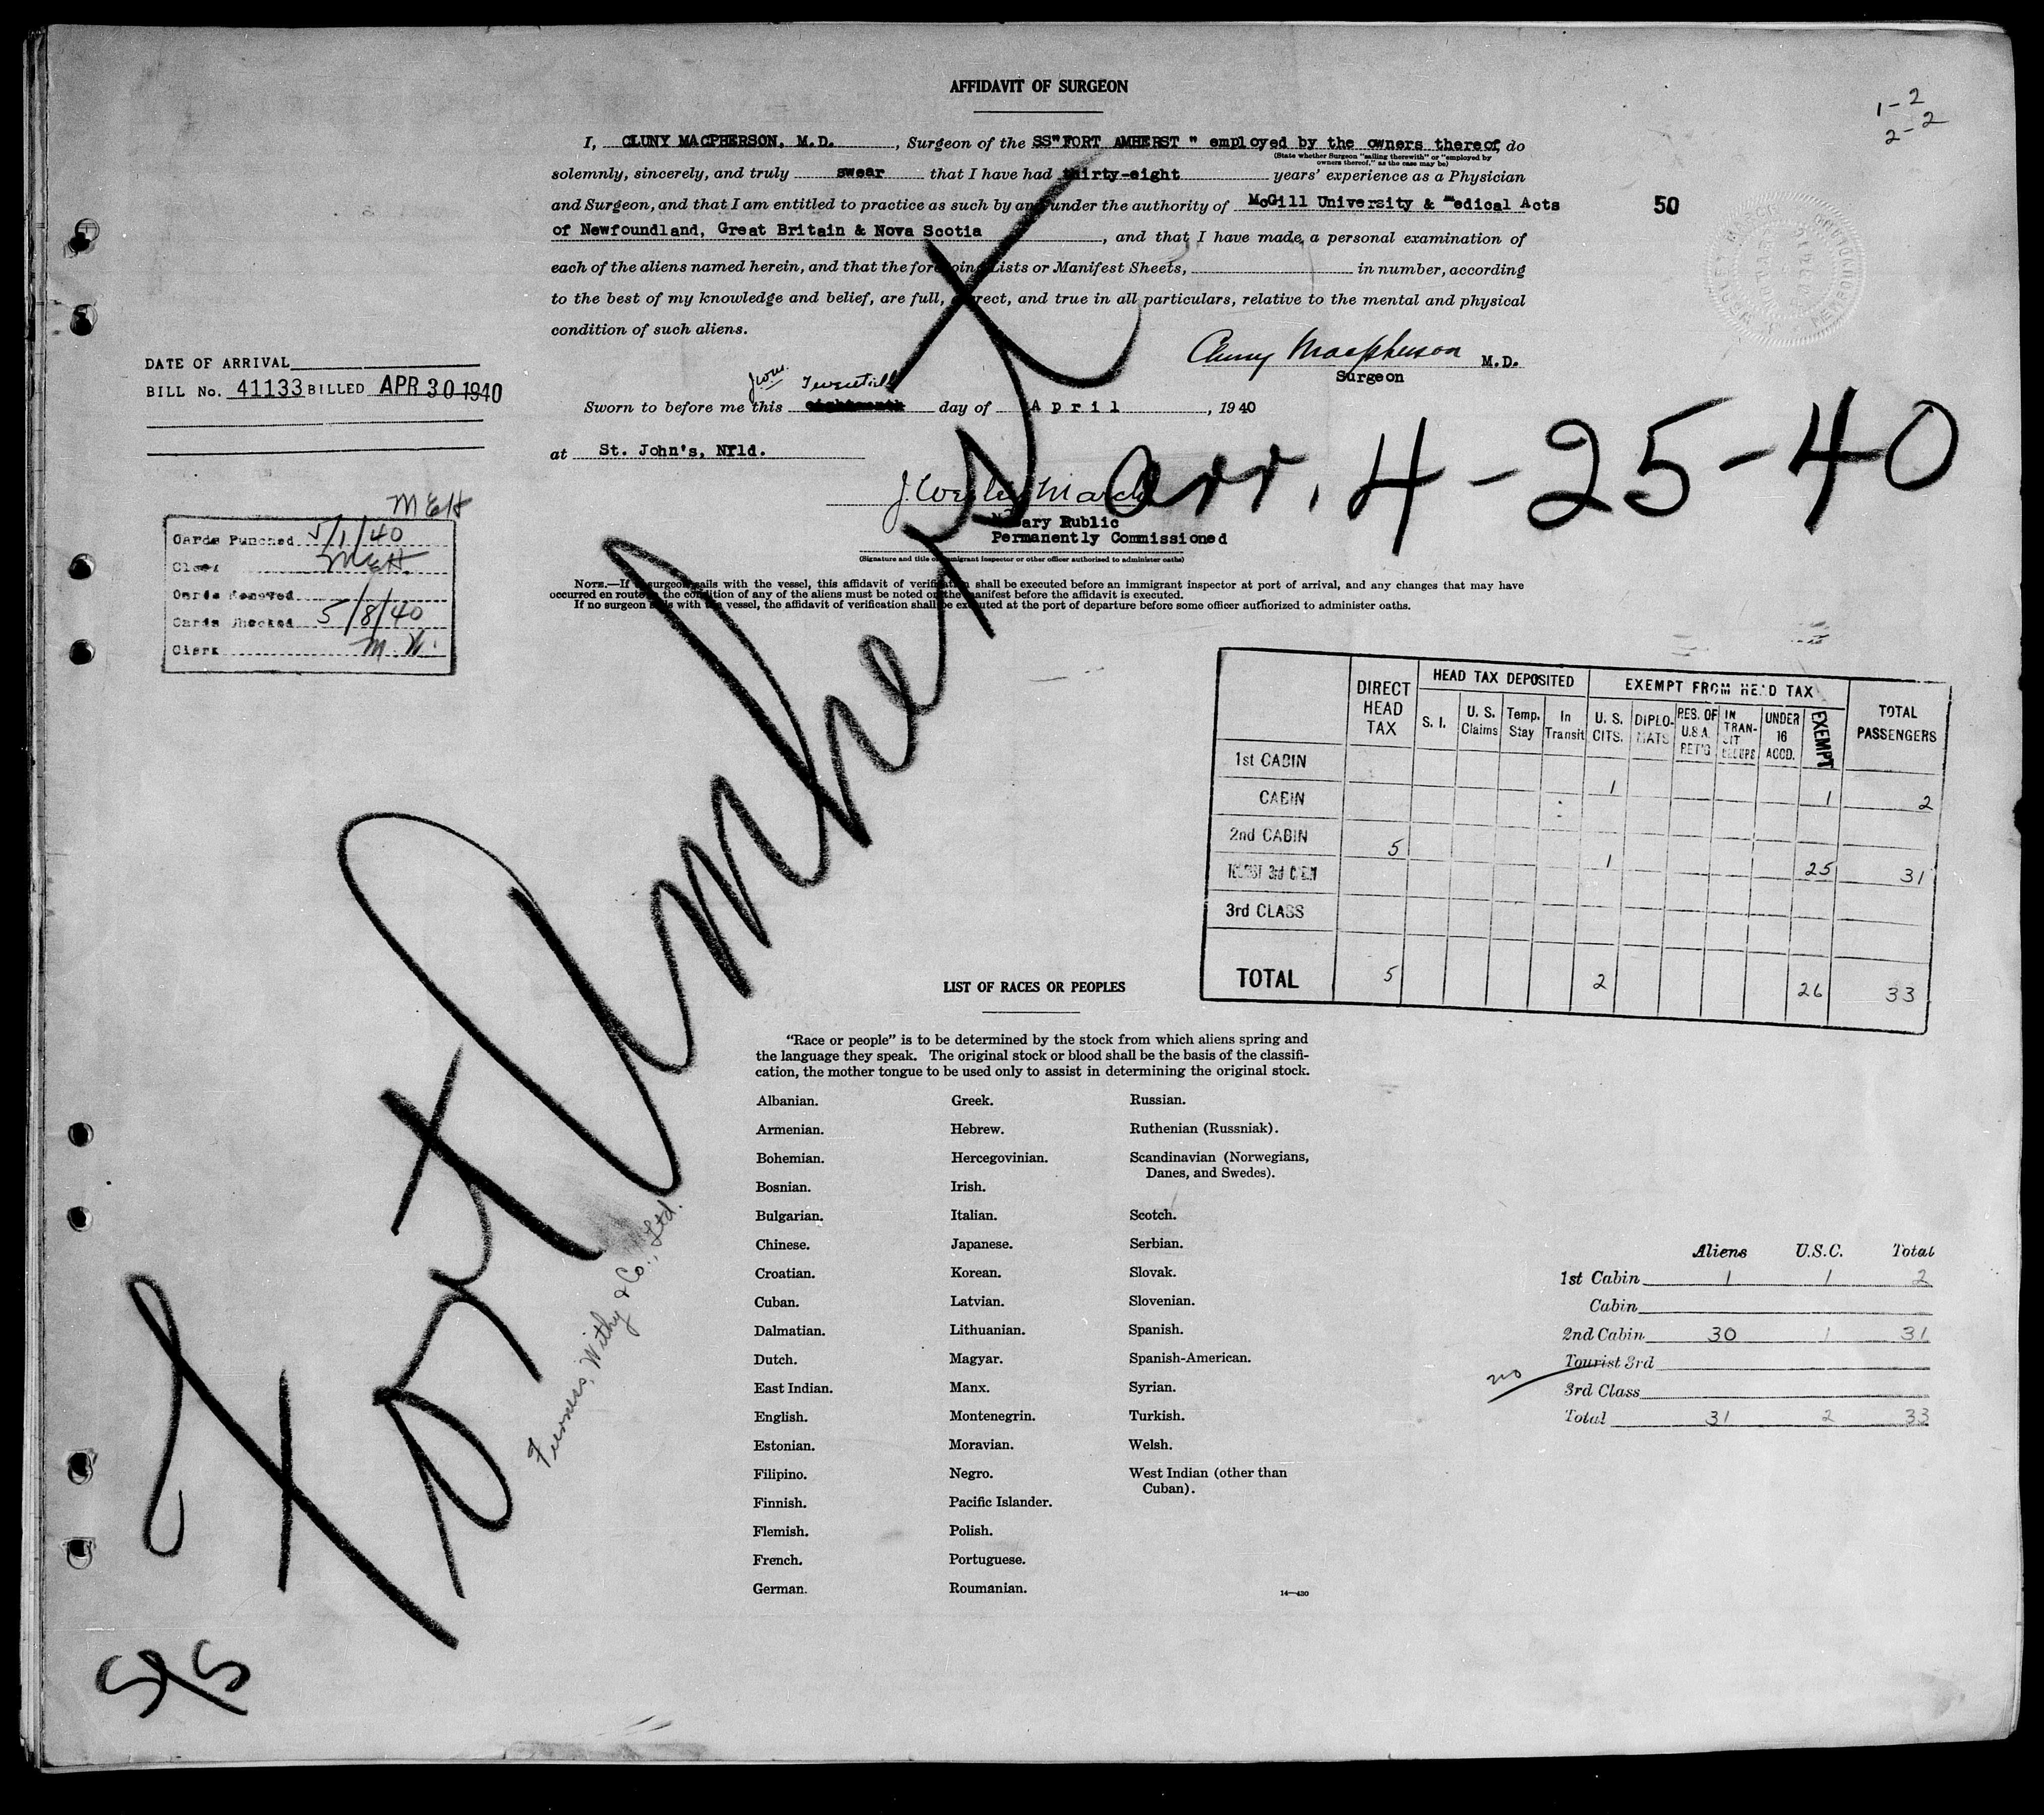 AFFIDAVIT OF SURGEON
1-2
2-2
I, CLUNY MACPHERSON, M.D. , Surgeon of the SS"FORT AMHERST " employed by the owners thereof, do
(State whether Surgeon "sailing therewith" or "employed by
owners thereof," as the case may be)
solemnly, sincerely, and truly swear that I have had thirty-eight years' experience as a Physician
and Surgeon, and that I am entitled to practice as such by and under the authority of McGill University & Medical Acts
50
of Newfoundland, Great Britain & Nova Scotia , and that I have made a personal examination of
each of the aliens named herein, and that the foregoing Lists or Manifest Sheets, in number, according
to the best of my knowledge and belief, are full, correct, and true in all particulars, relative to the mental and physical
condition of such aliens.
Cluny Macpherson M.D.
Surgeon
DATE OF ARRIVAL
BILL No. 41133 BILLED APR 30 1940
J.W.M. Twentieth
Sworn to before me this eighteenth day of April , 1940
at St. John's, Nfld.
J. Wesley March
Notary Public
Permanently Commissioned
(Signature and title of immigrant inspector or other officer authorised to administer oaths)
arr. 4-25-40
MEH
Cards Punched 5/1/40
Clerk MEH.
Cards Removed
Cards Checked 5/8/40
Clerk M.W.
NOTE.—If a surgeon sails with the vessel, this affidavit of verification shall be executed before an immigrant inspector at port of arrival, and any changes that may have
occurred en route in the condition of any of the aliens must be noted on the manifest before the affidavit is executed.
If no surgeon sails with the vessel, the affidavit of verification shall be executed at the port of departure before some officer authorized to administer oaths.
DIRECT HEAD TAX HEAD TAX DEPOSITED EXEMPT FROM HEAD TAX TOTAL PASSENGERS
S. I. U. S. Claims Temp. Stay In Transit U. S. CITS. DIPLO-MATS RES. OF U.S.A. RET'G IN TRAN-SIT GROUPS UNDER 16 ACCD. EXEMPT
1st CABIN 1 1 2
CABIN
2nd CABIN 5 1 25 31
TOURIST 3rd CABIN
3rd CLASS
TOTAL 5 2 26 33
Fort Amherst
Furness, Withy & Co., Ltd.
S/S
LIST OF RACES OR PEOPLES
"Race or people" is to be determined by the stock from which aliens spring and
the language they speak. The original stock or blood shall be the basis of the classifi-
cation, the mother tongue to be used only to assist in determining the original stock.
Albanian.
Armenian.
Bohemian.
Bosnian.
Bulgarian.
Chinese.
Croatian.
Cuban.
Dalmatian.
Dutch.
East Indian.
English.
Estonian.
Filipino.
Finnish.
Flemish.
French.
German.
Greek.
Hebrew.
Hercegovinian.
Irish.
Italian.
Japanese.
Korean.
Latvian.
Lithuanian.
Magyar.
Manx.
Montenegrin.
Moravian.
Negro.
Pacific Islander.
Polish.
Portuguese.
Roumanian.
Russian.
Ruthenian (Russniak).
Scandinavian (Norwegians,
Danes, and Swedes).
Scotch.
Serbian.
Slovak.
Slovenian.
Spanish.
Spanish-American.
Syrian.
Turkish.
Welsh.
West Indian (other than
Cuban).
14—430
Aliens U.S.C. Total
1st Cabin 1 1 2
Cabin
2nd Cabin 30 1 31
no Tourist 3rd
3rd Class
Total 31 2 33